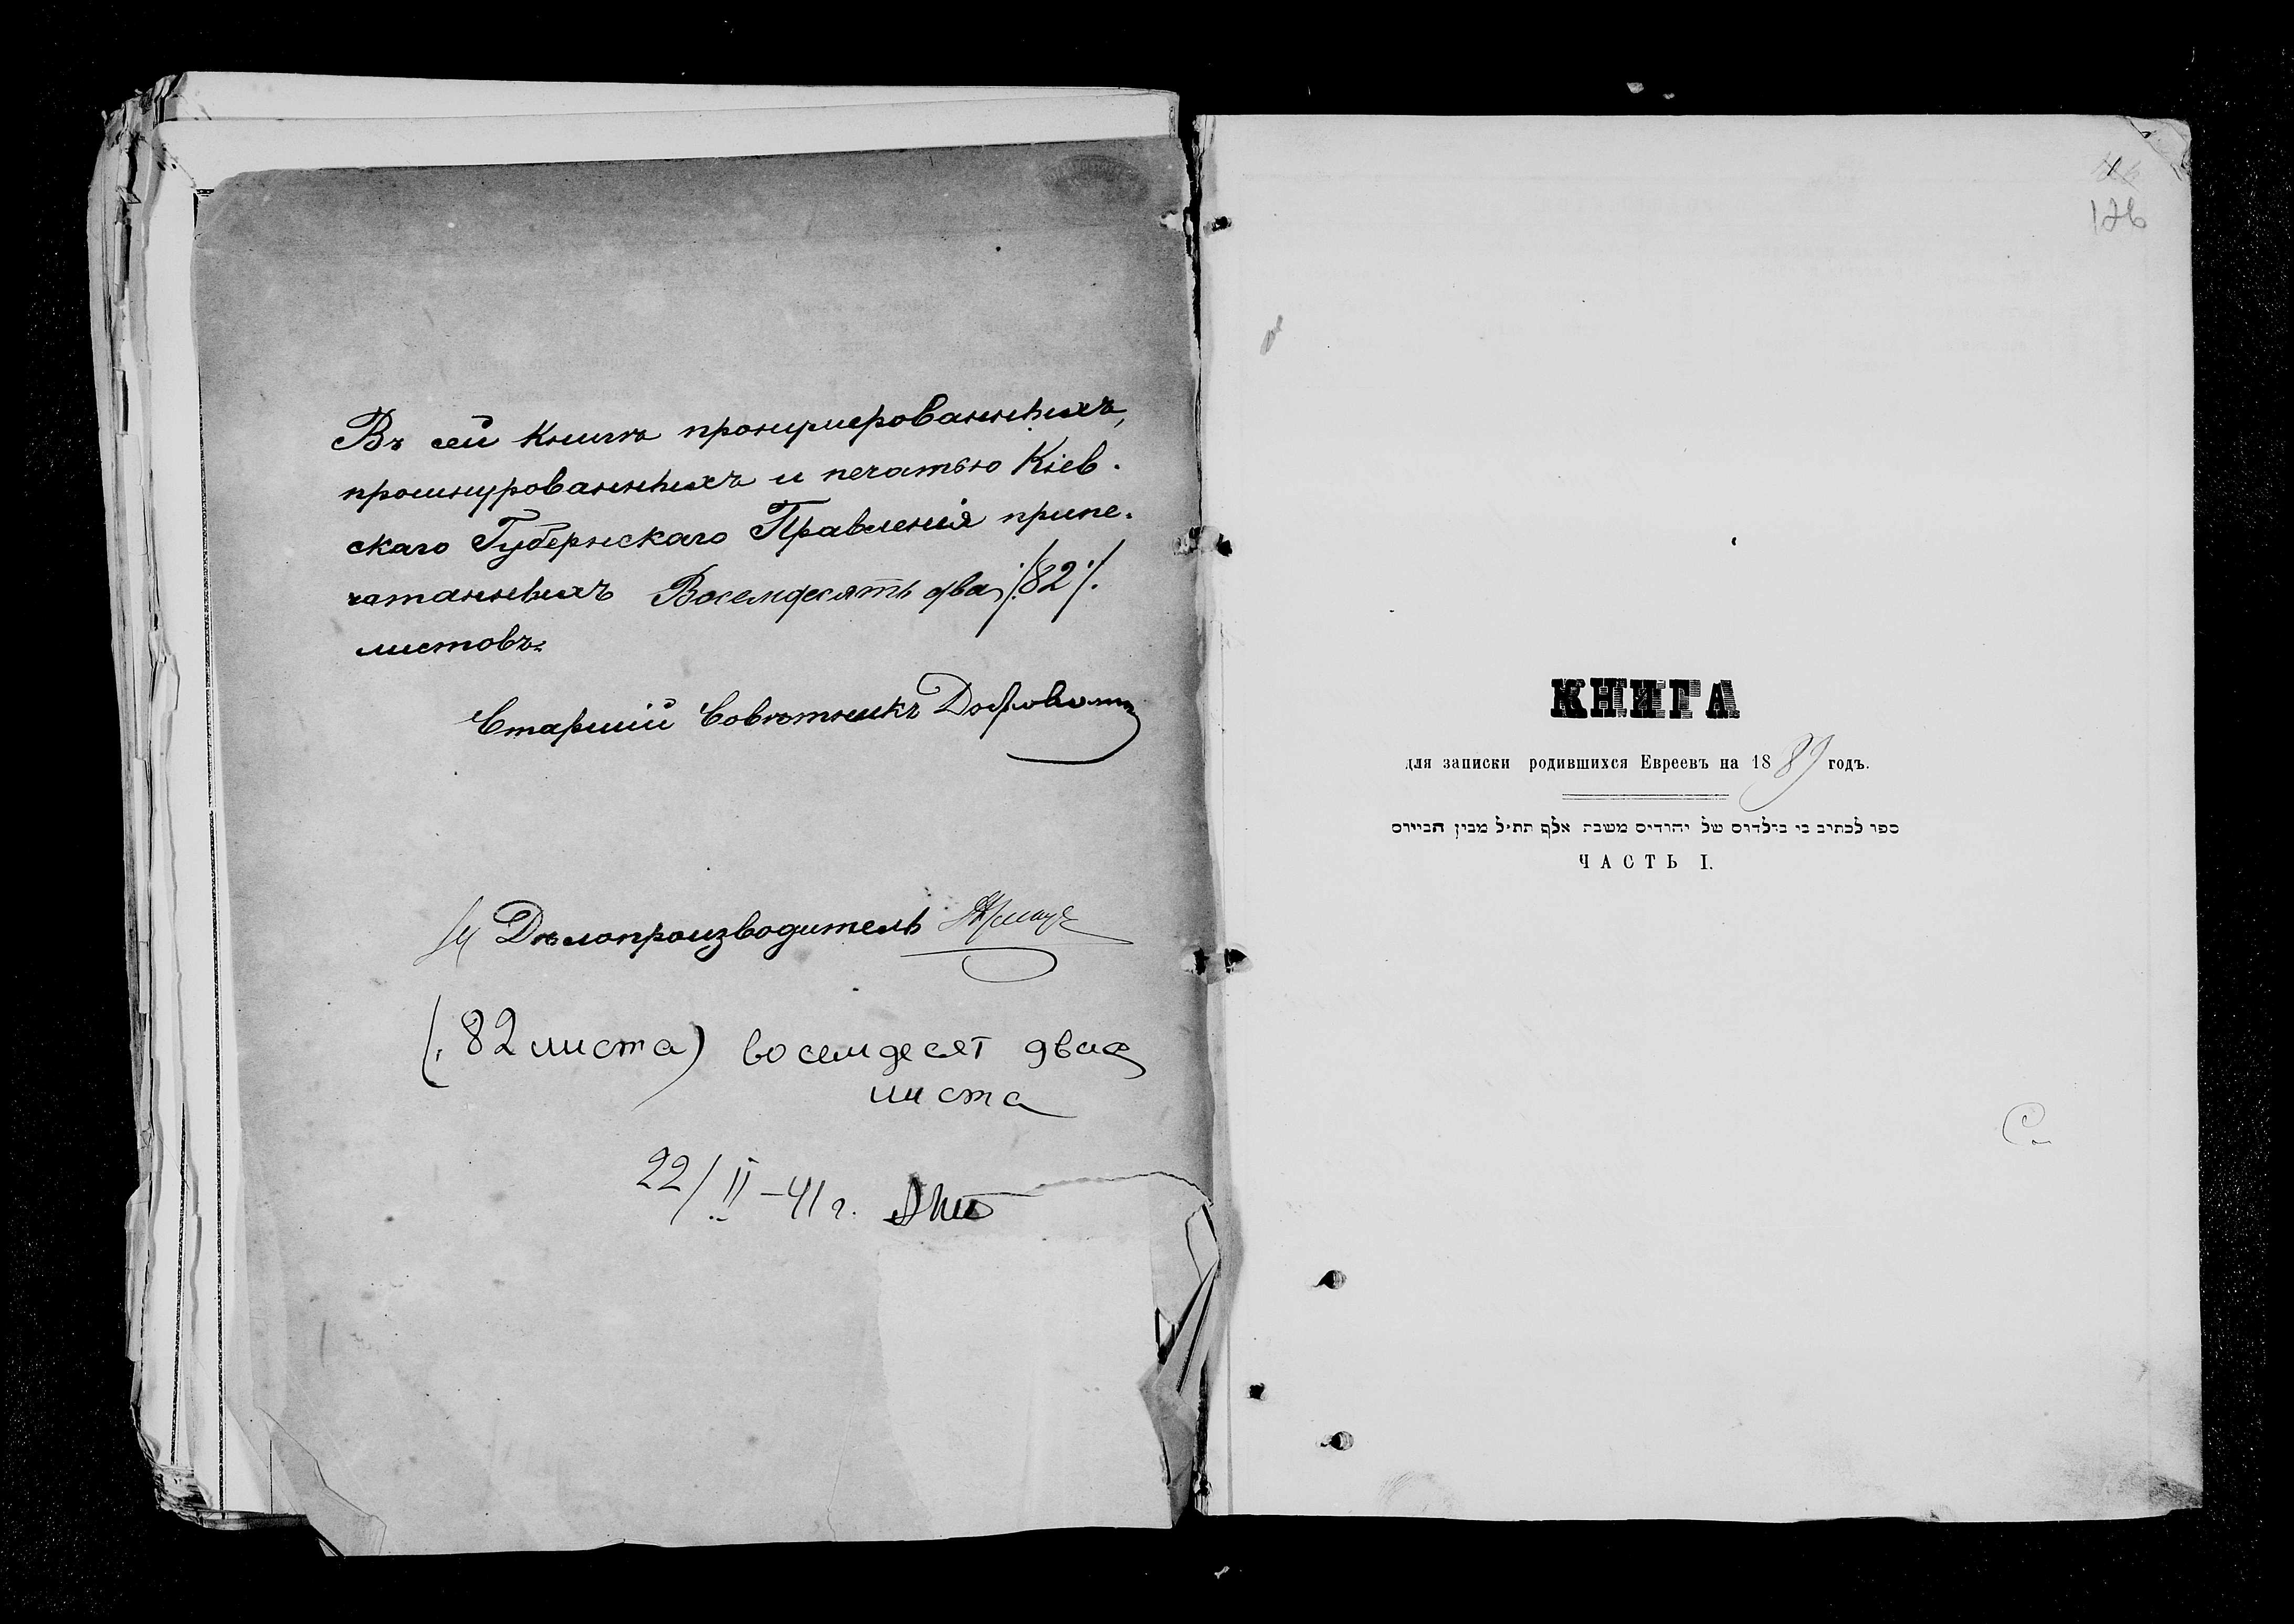 Въ сей Книгѣ пронумерованныхъ,
прошнурованныхъ и печатью Кіев-
скаго Губернскаго Правленія припе-
чатанныхъ Восемдесять два /:82:/
листовъ.
Старшій Совѣтникъ
Дѣлопроизводитель
(82 листа) восемдесят два
листа
22/II-41 г.
126
КНИГА
для записки родившихся Евреевъ на 1889 годъ.
ספר לכתוב בו בולדות של יהודים משנת אלף תת״ל מבין הביירס
ЧАСТЬ I.